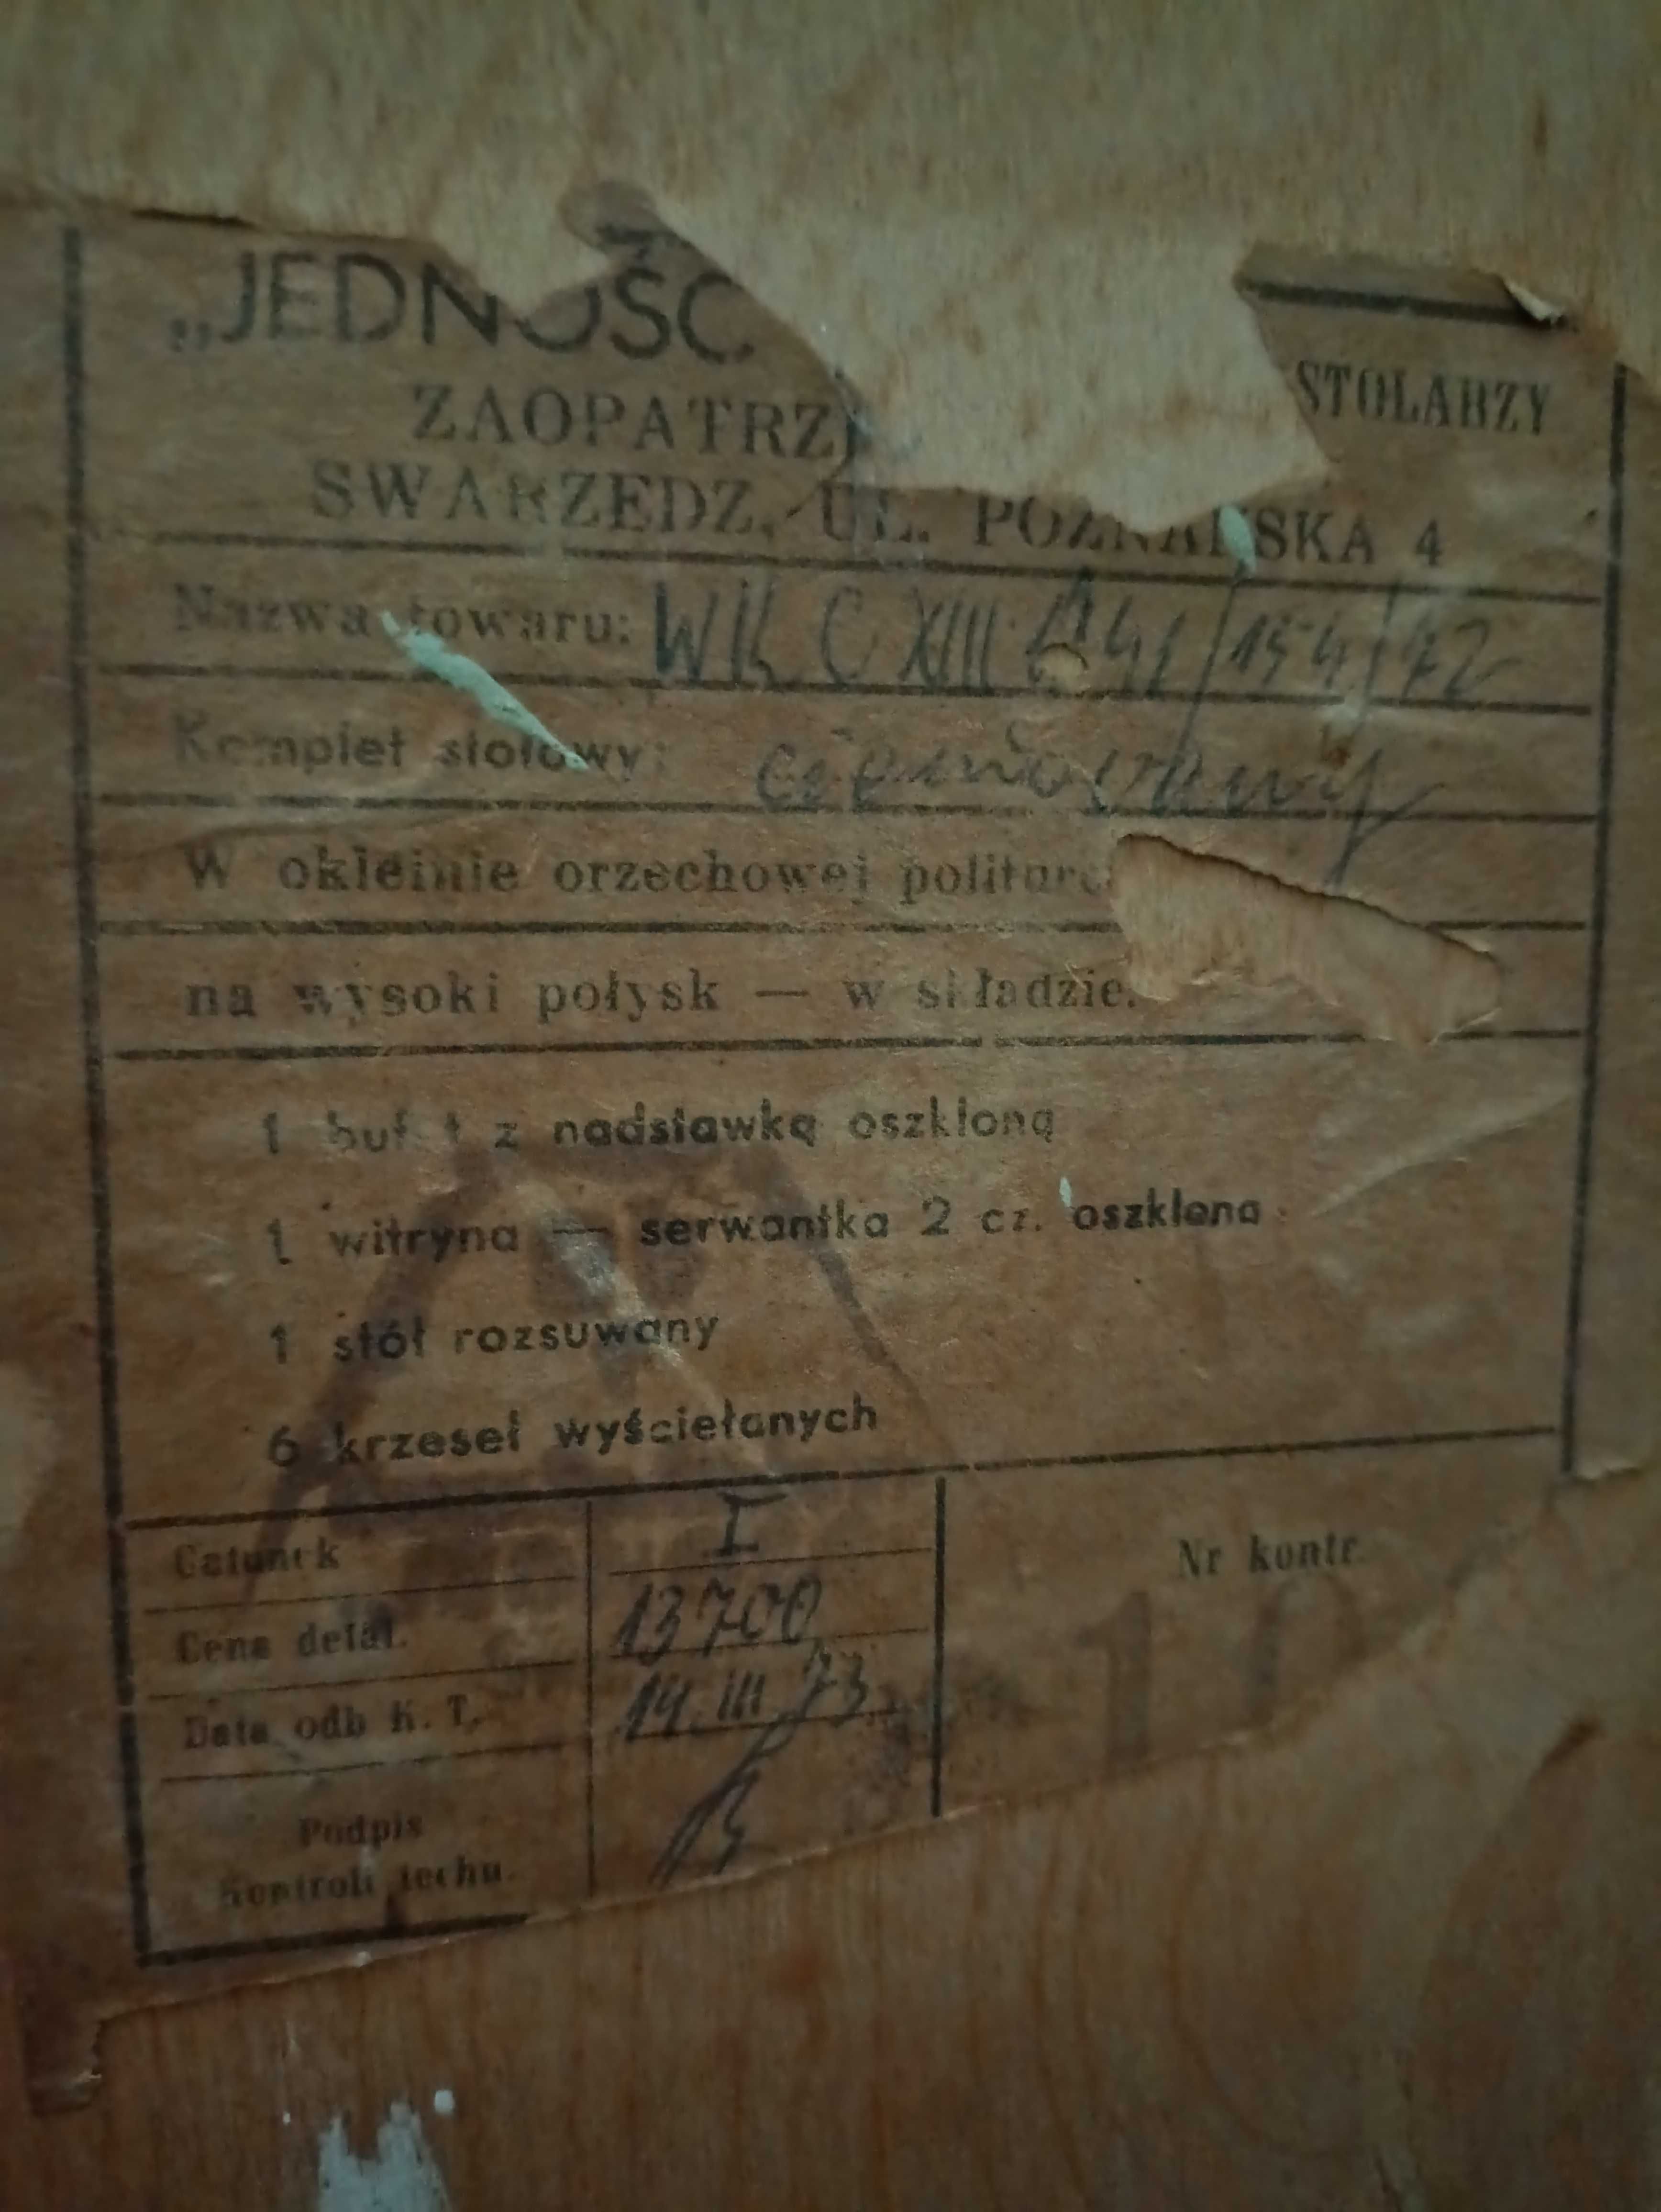 „JEDNOŚĆ
STOLARZY
ZAOPATRZ
SWARZĘDZ, UL. POZNAŃSKA 4
Nazwa towaru: WK C XIII A 41/154/72
Komplet stołowy:
W okleinie orzechowej
na wysoki połysk — w składzie:
1 bufet z nadstawką oszkloną
1 witryna — serwantka 2 cz. oszklona
1 stół rozsuwany
6 krzeseł wyściełanych
Gatunek I
Nr kontr.
Cena detal. 13700
Data odb K. T. 14. III 73
10
Podpis
Kontroli techn.